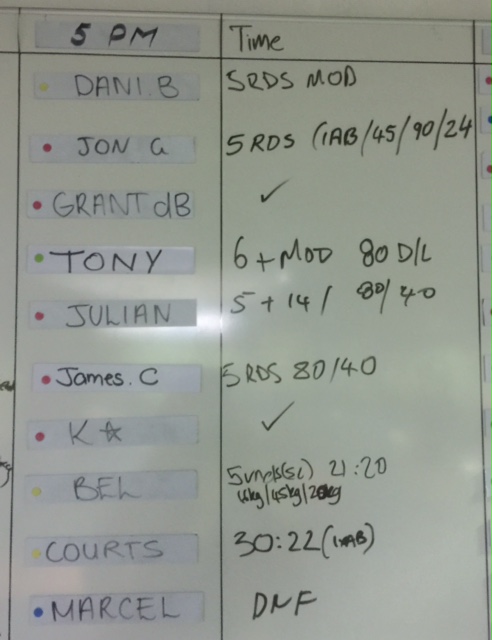 5 PM Time
DANI.B 5RDS MOD
JON G 5 RDS (1AB/45/90/24
GRANT dB ✓
TONY 6+MOD 80 D/L
JULIAN 5 + 14/ 80/40
James.C 5RDS 80/40
K☆ ✓
BEL 21:20
COURTS 30:22
MARCEL DNF